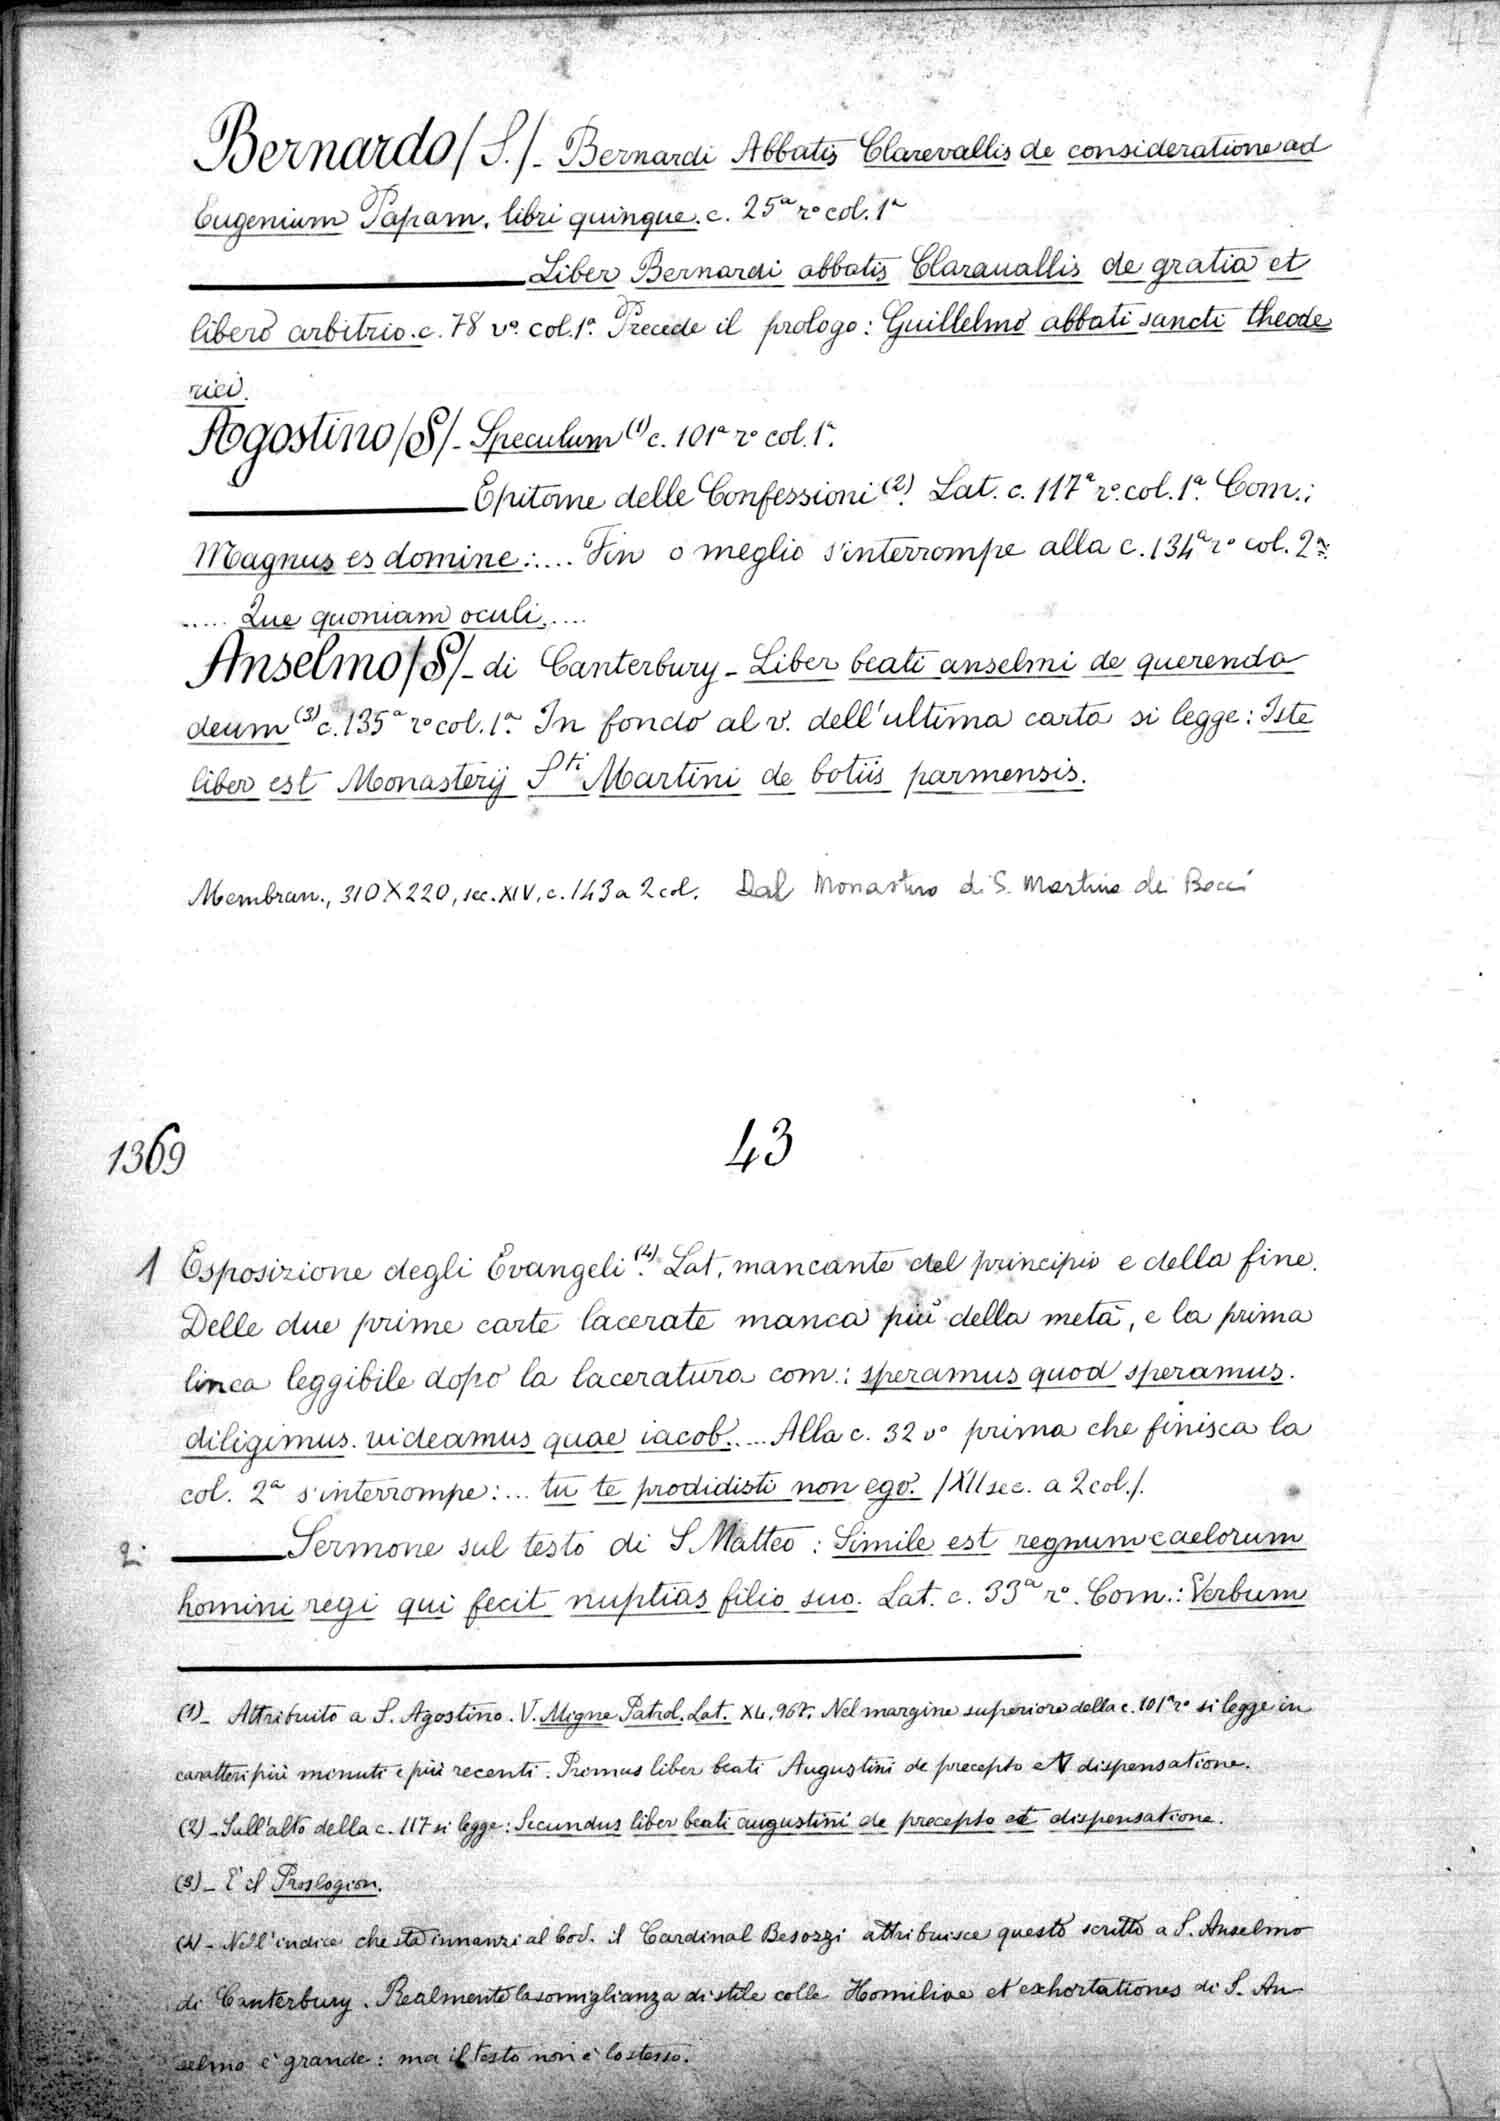 Bernardo /S./ - Bernardi Abbatis Clarevallis de consideratione ad
Eugenium Papam. libri quinque. c. 25ª rº col. 1ª
Liber Bernardi abbatis Clarauallis de gratia et
libero arbitrio. c. 78 vº. col. 1ª. Precede il prologo: Guillelmo abbati sancti theode
rici.
Agostino /S/ - Speculum (1) c. 101ª rº col. 1ª.
Epitome delle Confessioni (2). Lat. c. 117ª rº. col. 1ª. Com.:
Magnus es domine:.... Fin o meglio s'interrompe alla c. 134ª rº col. 2ª:
..... Que quoniam oculi.....
Anselmo /S/ - di Canterbury - Liber beati anselmi de querendo
deum (3) c. 135ª rº col. 1ª. In fondo al v. dell'ultima carta si legge: Iste
liber est Monasterij Sti Martini de botiis parmensis.
Membran., 310 X 220, sec. XIV, c. 143 a 2 col. Dal Monastero di S. Martino de' Bocci
1369
43
1 Esposizione degli Evangeli (4). Lat. mancante del principio e della fine.
Delle due prime carte lacerate manca più della metà, e la prima
linea leggibile dopo la laceratura com.: speramus quod speramus.
diligimus. videamus quae iacob..... Alla c. 32 vº prima che finisca la
col. 2ª s'interrompe:... tu te prodidisti non ego. /XII sec. a 2 col./.
2. Sermone sul testo di S. Matteo: Simile est regnum caelorum
homini regi qui fecit nuptias filio suo. Lat. c. 33ª rº. Com.: Verbum
(1) - Attribuito a S. Agostino. V. Migne Patrol. Lat. XL, 967. Nel margine superiore della c. 101ª rº si legge in
caratteri più minuti e più recenti. Primus liber beati Augustini de precepto et dispensatione.
(2) - Sull'alto della c. 117 si legge: Secundus liber beati augustini de precepto et dispensatione.
(3) - È il Proslogion.
(4) - Nell'indice che sta innanzi al Cod. il Cardinal Besozzi attribuisce questo scritto a S. Anselmo
di Canterbury. Realmente la somiglianza di stile colle Homiliae et exhortationes di S. An-
selmo è grande: ma il testo non è lo stesso.